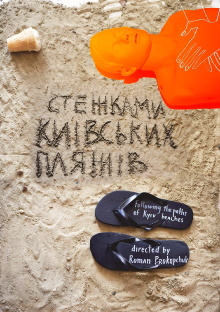 СТЕЖКАМИ
КИЇВСЬКИХ
ПЛЯЖІВ
following the paths
of Kyiv beaches
directed by
Roman Prokopchuk